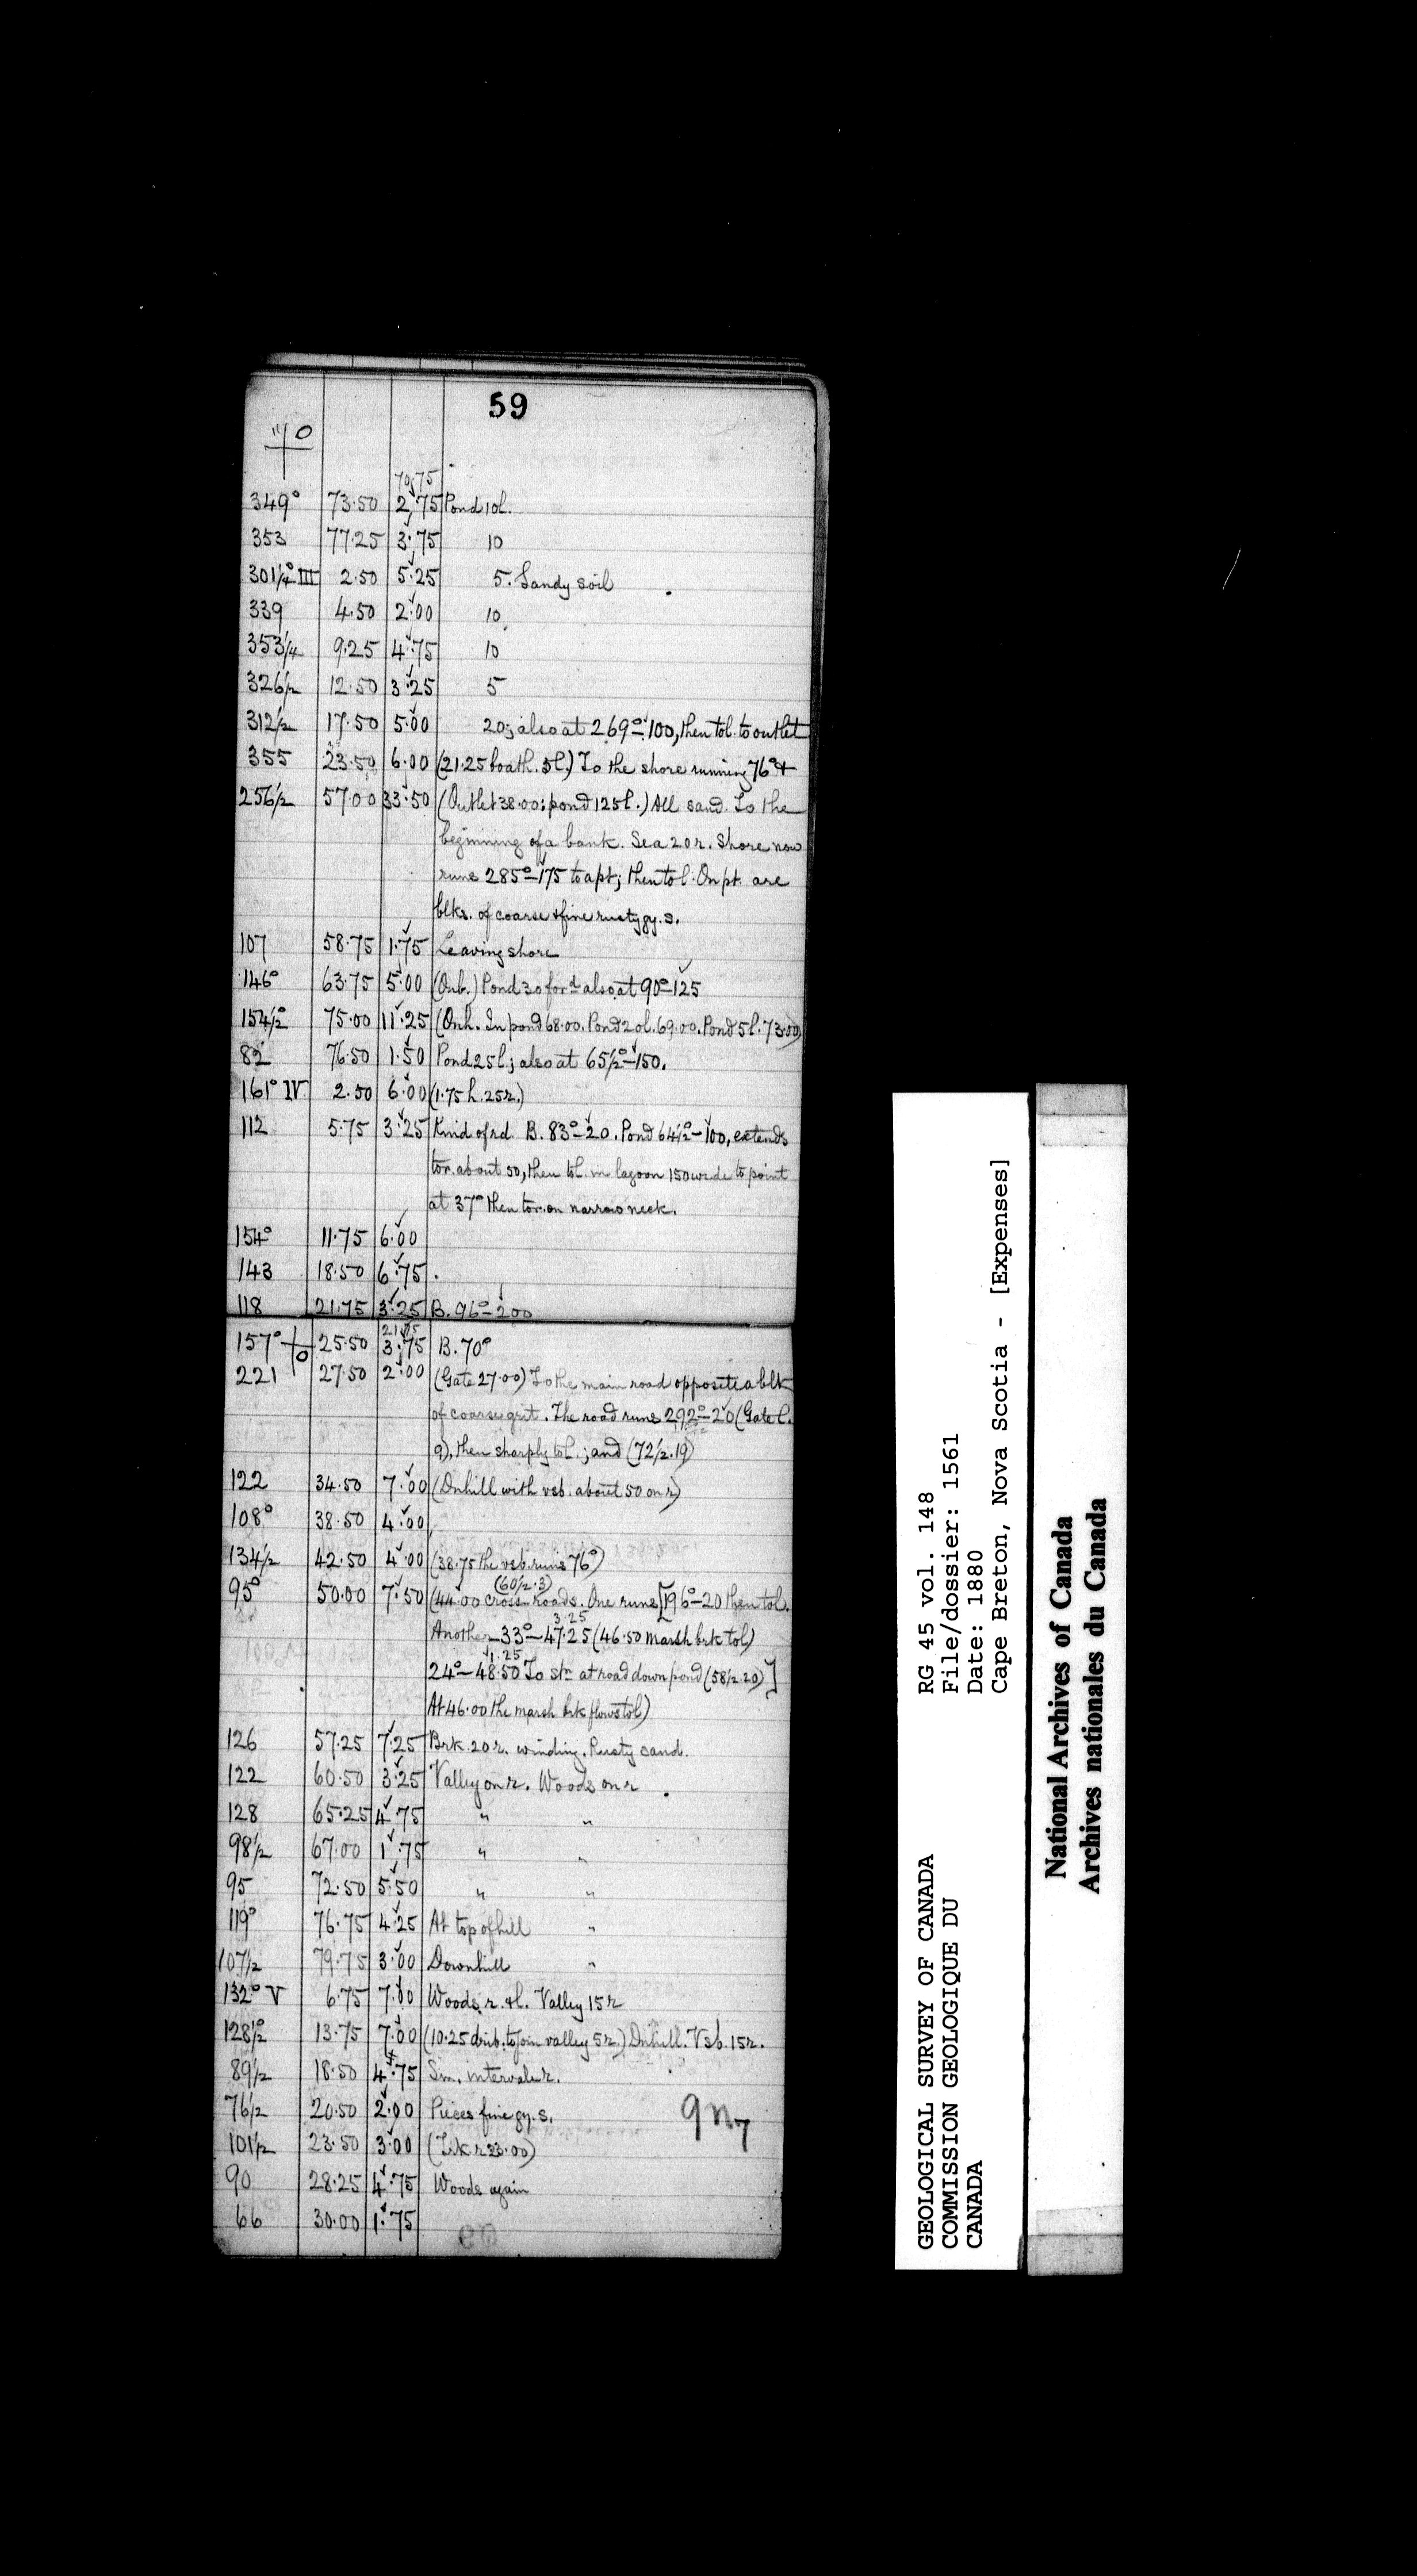 59
" 0
70.75
349° 73.50 2.75 Pond 10l.
353 77.25 3.75 10
301¼° III 2.50 5.25 5. Sandy soil
339 4.50 2.00 10
353¼ 9.25 4.75 10
326½ 12.50 3.25 5
312½ 17.50 5.00 20; also at 269°-100, then to l. to outlet
355 23.50 6.00 (21.25 boath. 5l.) To the shore running 76° &
256½ 57.00 33.50 (Outlet 38.00; pond 125l.) All sand. To the
beginning of a bank. Sea 20r. Shore now
runs 285°-175 to a pt; then to l. On pt. are
blks. of coarse & fine rusty gy. s.
107 58.75 1.75 Leaving shore
146° 63.75 5.00 (Onb.) Pond 30 for'd also at 90°-125
154½° 75.00 11.25 (Onh. In pond 68.00. Pond 20l. 69.00. Pond 5l. 73.00)
82 76.50 1.50 Pond 25l; also at 65½°-150.
161° IV 2.50 6.00 (1.75 h. 25r.)
112 5.75 3.25 Kind of rd. B. 83°-20. Pond 64½°-100, extends
to r. about 50, then to l. in lagoon 150 wide to point
at 37° then to r. on narrow neck.
154° 11.75 6.00
143 18.50 6.75
118 21.75 3.25 B. 96°-200
21.75
157° 0 25.50 3.75 B. 70°
221 27.50 2.00 (Gate 27.00) To the main road opposite a blk
of coarse grit. The road runs 292°-20 (Gate l.
9), then sharply to l.; and (72½.19)
122 34.50 7.00 (Dnhill with vsb. about 50 on r)
108° 38.50 4.00
134½ 42.50 4.00 (38.75 the vsb. runs 76°)
(60½.3)
95° 50.00 7.50 (44.00 cross roads. One runs [196°-20 then to l.
3.25
Another 33°-47.25 (46.50 marsh brk to l)
1.25
24°-48.50 To stn at road down pond (58½.20)]
At 46.00 the marsh brk flows to l)
126 57.25 7.25 Brk 20r. winding. Rusty sand.
122 60.50 3.25 Valley on r. Woods on r
128 65.25 4.75 " "
98½ 67.00 1.75 " "
95 72.50 5.50 " "
119° 76.75 4.25 At top of hill "
107½ 79.75 3.00 Downhill "
132° V 6.75 7.00 Woods r. & l. Valley 15r
128½° 13.75 7.00 (10.25 drib. to join valley 5r.) Dnhill. Vsb. 15r.
89½ 18.50 4.75 Sm. intervale r.
76½ 20.50 2.00 Pieces fine gy. s.
101½ 23.50 3.00 r 23.00)
90 28.25 4.75 Woods again
66 30.00 1.75
GEOLOGICAL SURVEY OF CANADA
COMMISSION GEOLOGIQUE DU
CANADA
RG 45 vol. 148
File/dossier: 1561
Date: 1880
Cape Breton, Nova Scotia - [Expenses]
National Archives of Canada
Archives nationales du Canada